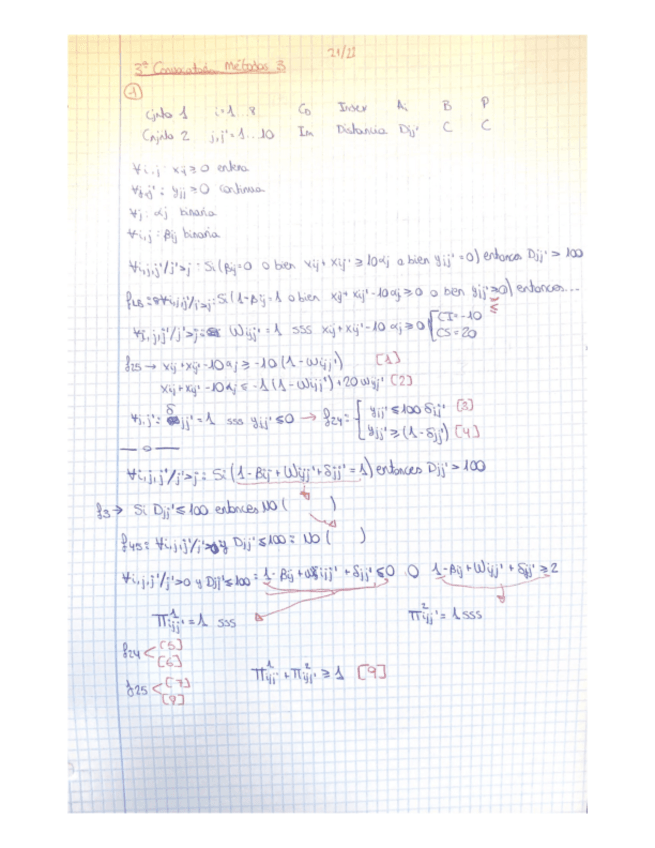 21/22
3ª Convocatoria Métodos 3
1
Cjnto 1 i=1..8 Co Inser Ai B P
Cnjnto 2 j,j'=1..10 Im Distancia Djj' C C
∀i,j: xij ≥ 0 entera
∀j,j': yjj' ≥ 0 continua
∀j: αj binaria
∀i,j: βij binaria
∀i,j,j'/j'>j: Si (βij=0 o bien xij + xij' ≥ 10αj o bien yjj' = 0) entonces Djj' > 100
∀i,j,j'/j'>j: Si (1-βij=1 o bien xij + xij' - 10αj ≥ 0 o bien yjj' ≤ 0) entonces...
∀i,j,j'/j'>j: Wijj' = 1 sss xij + xij' - 10 αj ≥ 0 { CI=-10
CS=20
f25 → xij + xij' - 10αj ≥ -10 (1-Wijj') [1]
xij + xij' - 10αj ≤ -1 (1-Wijj') + 20 Wijj' [2]
∀j,j': δjj' = 1 sss yjj' ≤ 0 → f24 = { yjj' ≤ 100 δjj' [3]
yjj' ≥ (1-δjj') [4]
— o —
∀i,j,j'/j'>j: Si (1-βij + Wijj' + δjj' = 1) entonces Djj' > 100
f3 → Si Djj' ≤ 100 entonces NO ( )
f45 = ∀i,j,j'/j'>j y Djj' ≤ 100 = NO ( )
∀i,j,j'/j'>0 y Djj' ≤ 100 = 1-βij + Wijj' + δjj' ≤ 0 O 1-βij + Wijj' + δjj' ≥ 2
Π¹ijj' = 1 sss Π²ijj' = 1 sss
f24 < [5]
[6]
f25 < [7]
[8]
Π¹ijj' + Π²ijj' ≥ 1 [9]